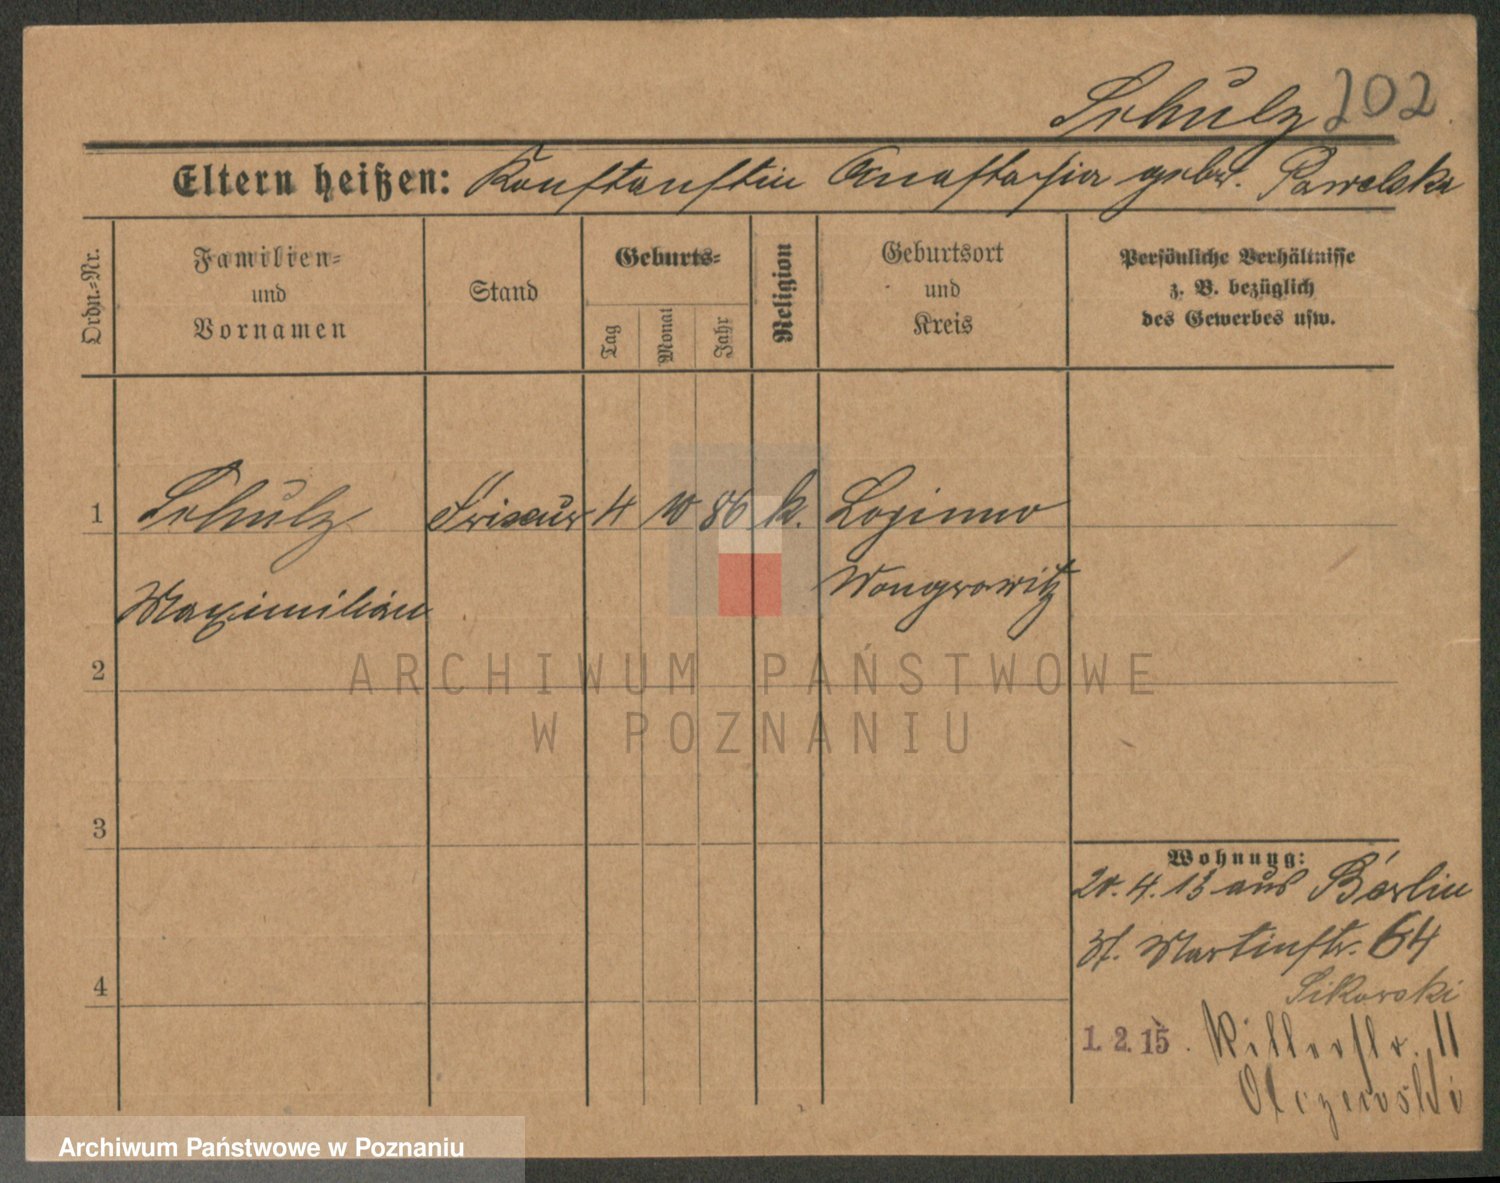 Schulz 202
Eltern heißen: Konstantin Anastasia geb. Pawelska
Ordn.-Nr.
Familien-
und
Vornamen
Stand
Geburts-
Tag
Monat
Jahr
Religion
Geburtsort
und
Kreis
Persönliche Verhältnisse
z. B. bezüglich
des Gewerbes usw.
1 Schulz Friseur 4 10 86 k. Lozinno
Maximilian Wongrowitz
2
3
4
Wohnung:
20. 4. 13 aus Berlin
St. Martinstr. 64
Sikorski
1. 2. 15. Ritterstr. 11
Olczewski
ARCHIWUM PAŃSTWOWE
W POZNANIU
Archiwum Państwowe w Poznaniu